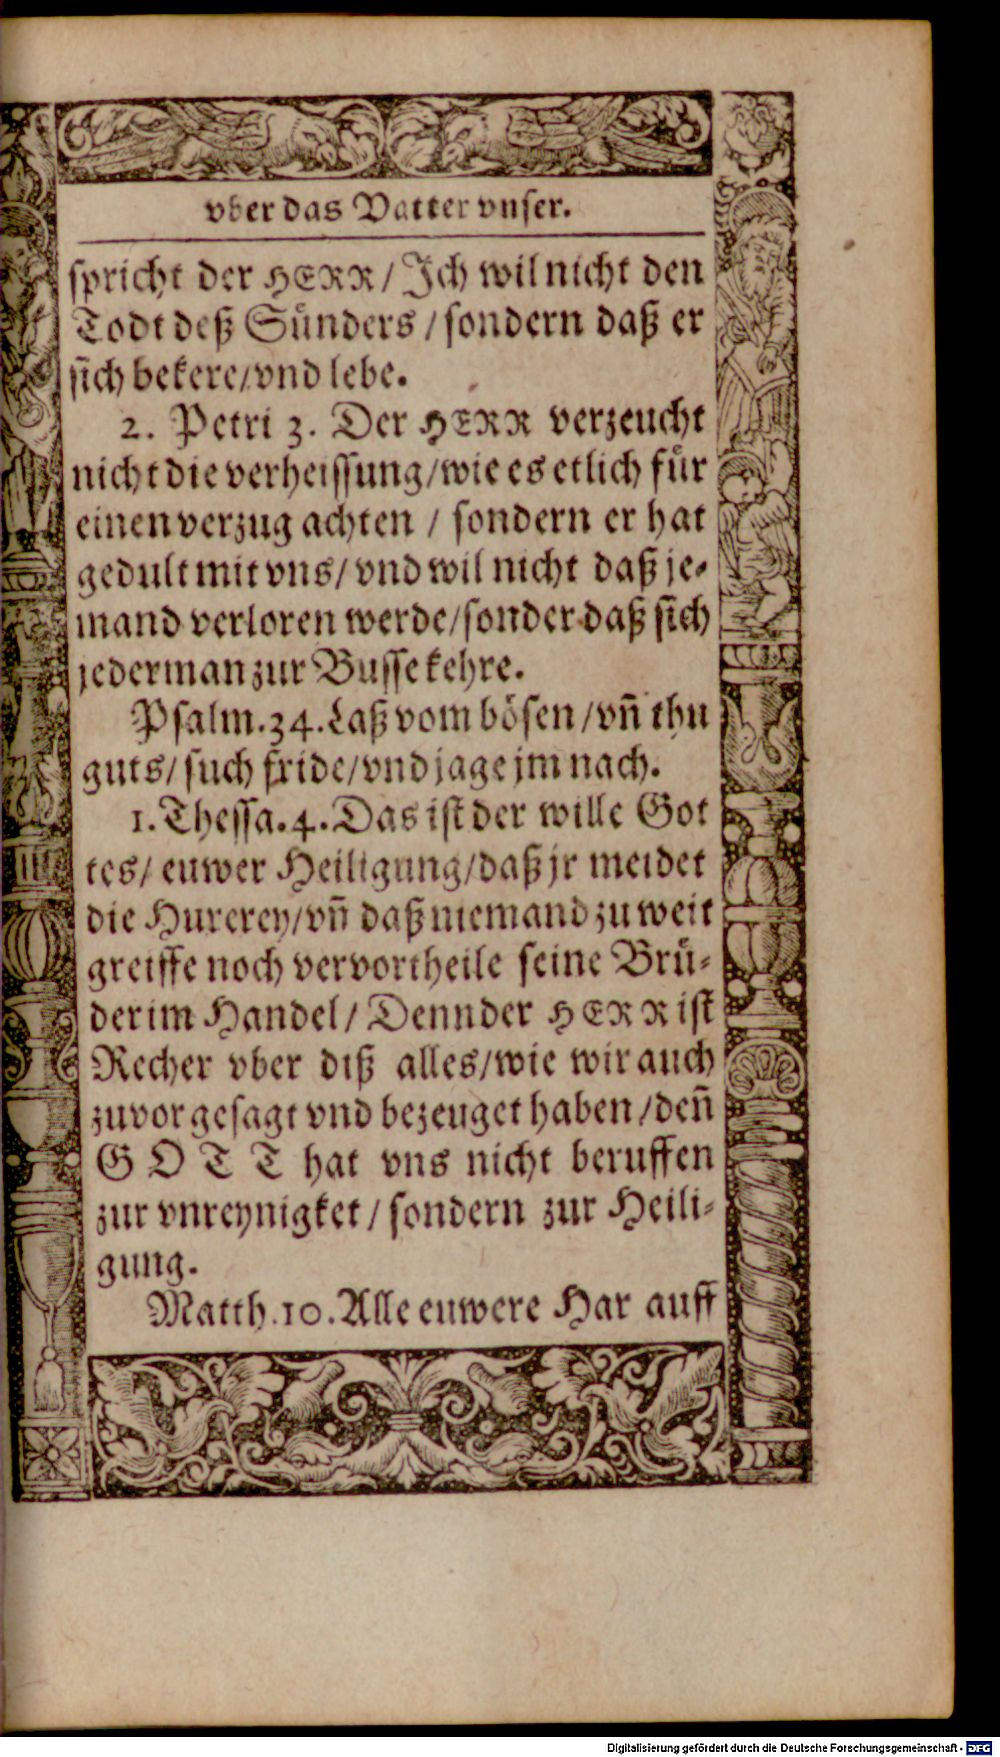 vber das Vatter vnser.
spricht der HERR / Ich wil nicht den
Todt deß Sünders / sondern daß er
sich bekere / vnd lebe.
2. Petri 3. Der HERR verzeucht
nicht die verheissung / wie es etlich für
einen verzug achten / sondern er hat
gedult mit vns / vnd wil nicht daß je-
mand verloren werde / sonder daß sich
jederman zur Busse kehre.
Psalm. 34. Laß vom bösen / vñ thu
guts / such fride / vnd jage jm nach.
1. Thessa. 4. Das ist der wille Got
tes / euwer Heiligung / daß jr meidet
die Hurerey / vñ daß niemand zu weit
greiffe noch vervortheile seine Brü-
der im Handel / Denn der HERR ist
Recher vber diß alles / wie wir auch
zuvor gesagt vnd bezeuget haben / deñ
GOTT hat vns nicht beruffen
zur vnreynigket / sondern zur Heili-
gung.
Matth. 10. Alle euwere Har auff
Digitalisierung gefördert durch die Deutsche Forschungsgemeinschaft - DFG